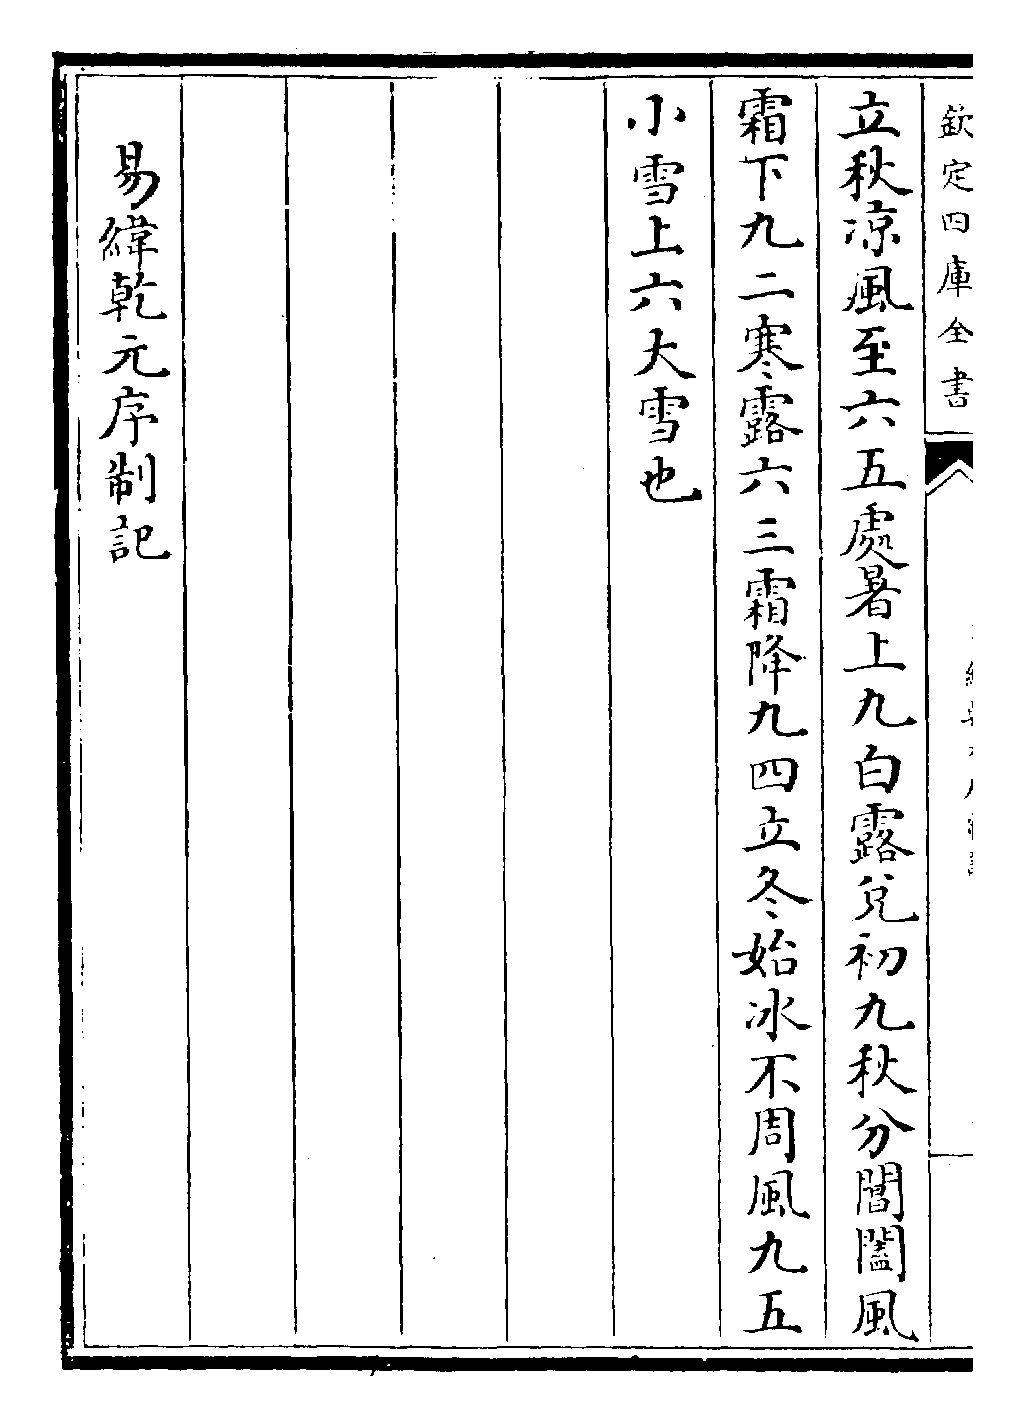 欽定四庫全書
立秋涼風至六五處暑上九白露兌初九秋分閶闔風
霜下九二寒露六三霜降九四立冬始冰不周風九五
小雪上六大雪也
易緯乾元序制記